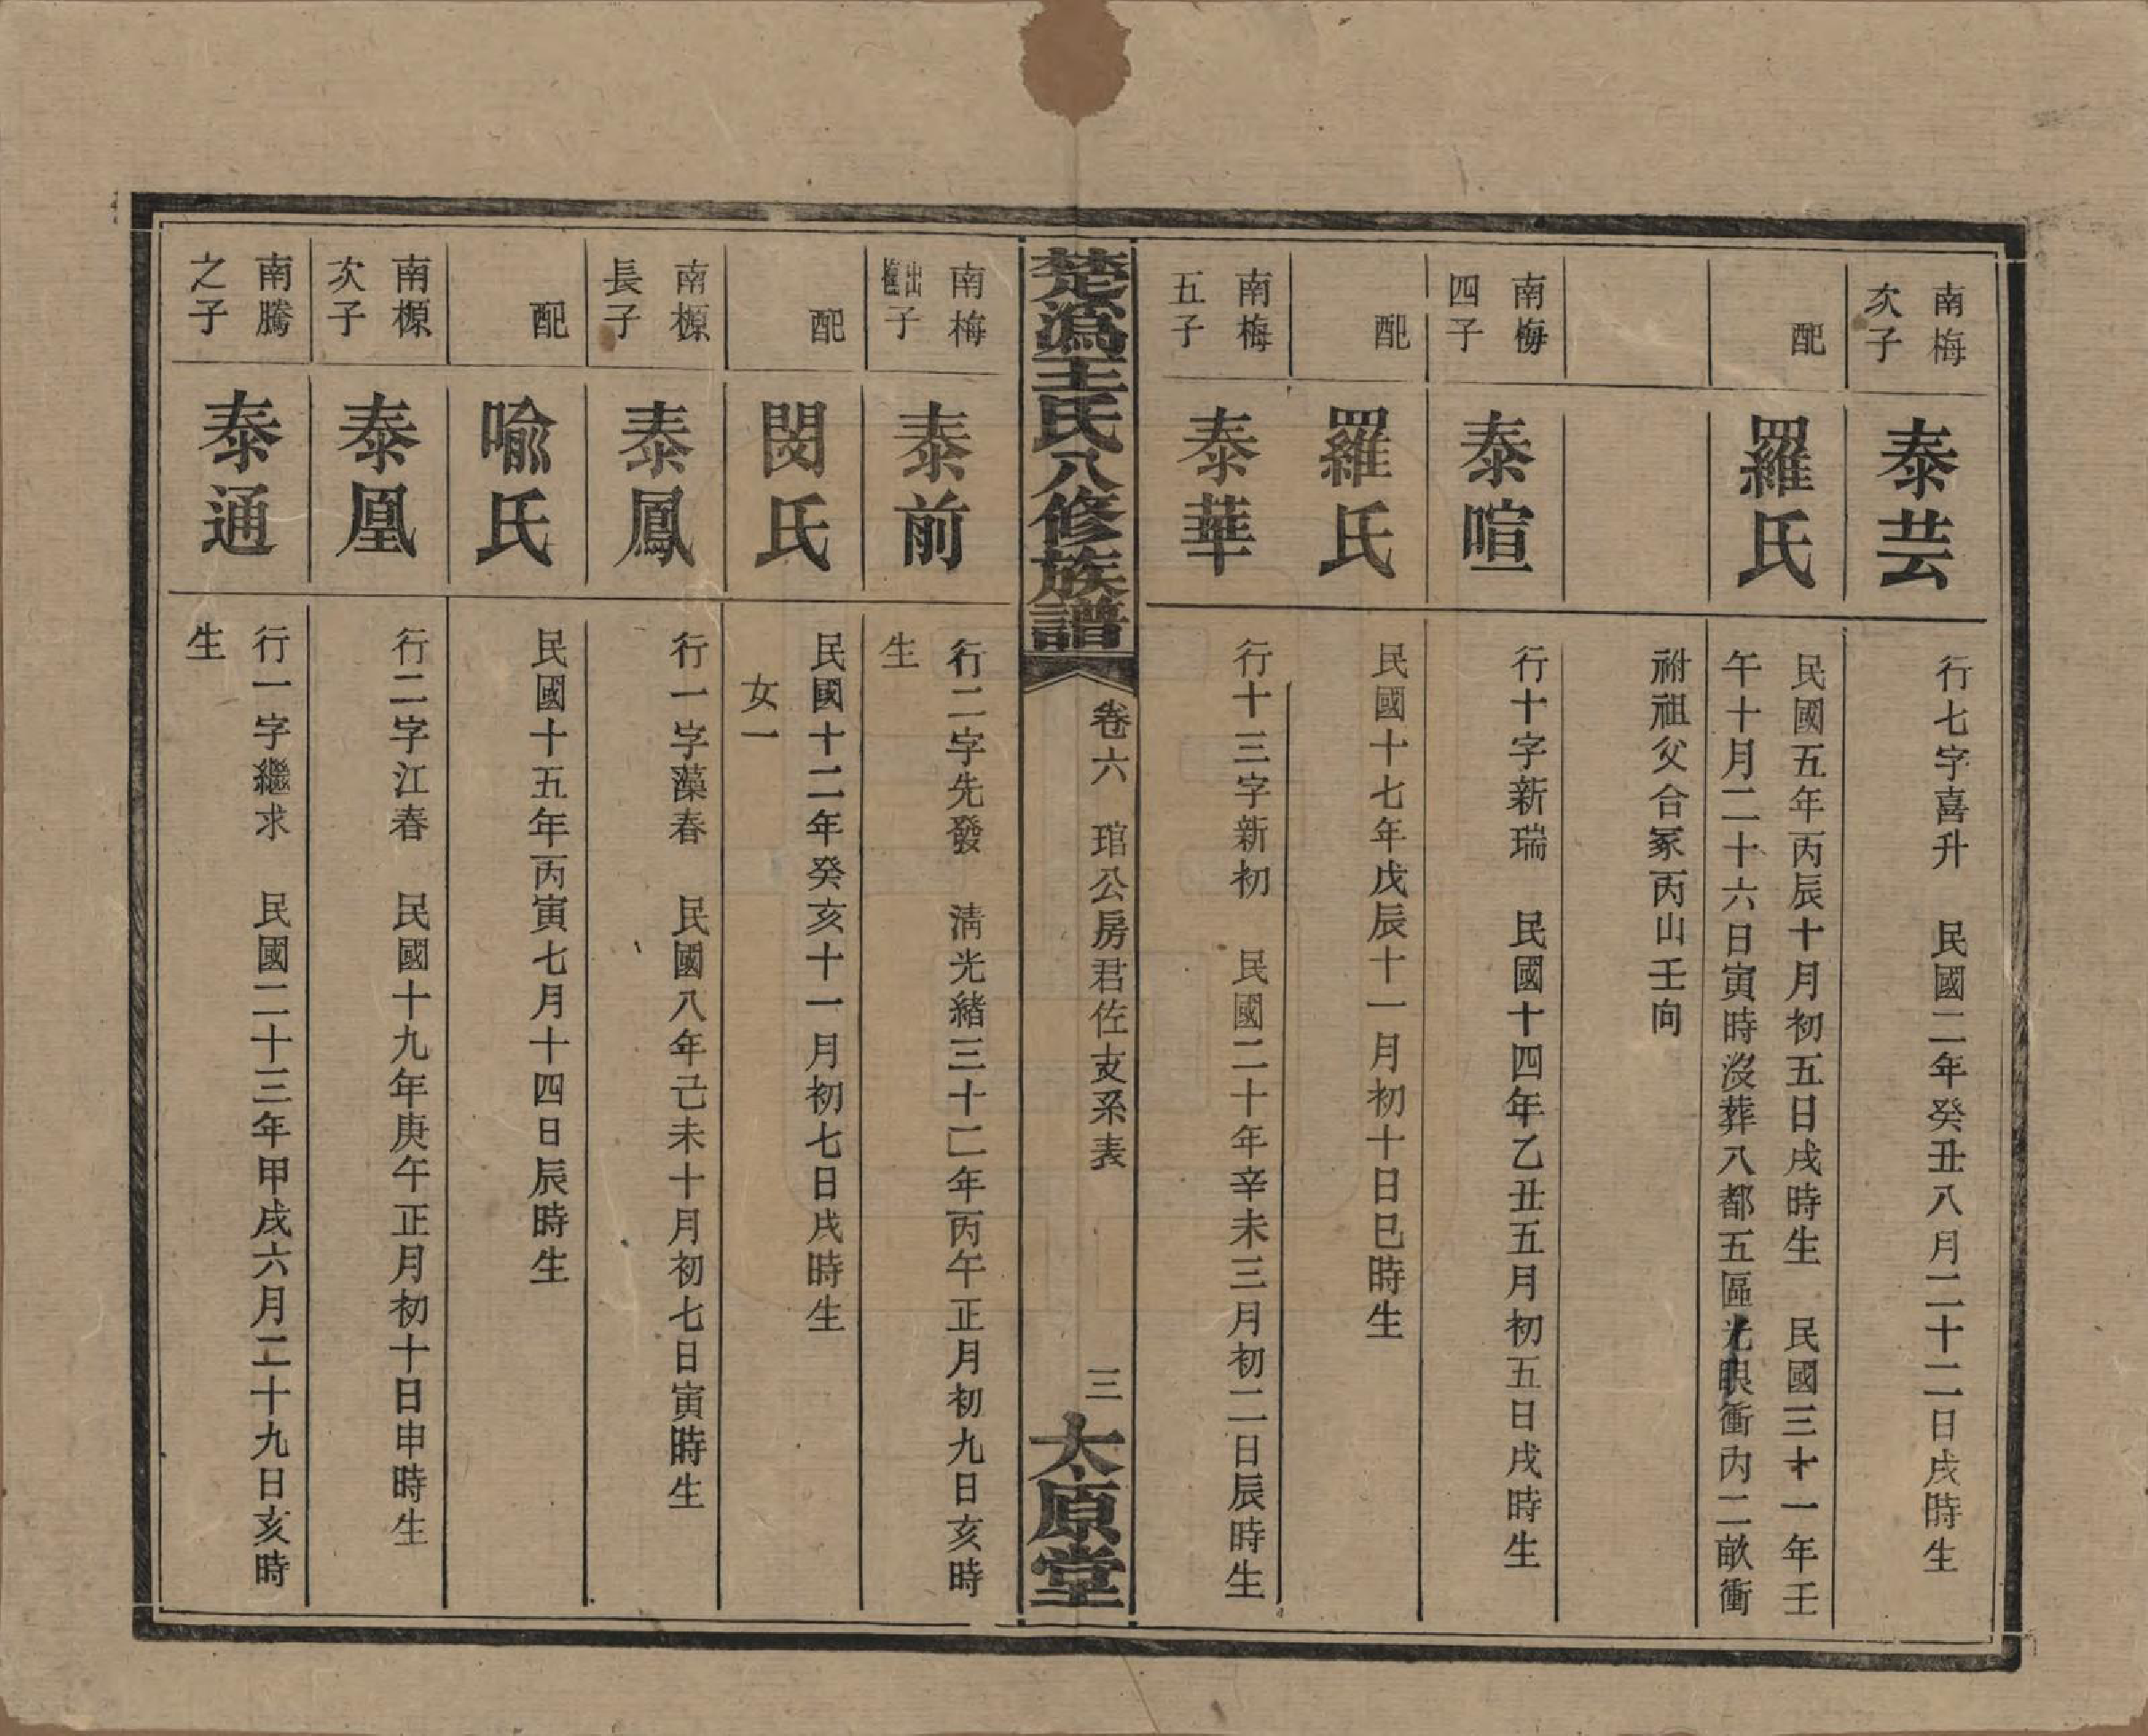 南梅
次子
泰芸
行七字喜升　民國二年癸丑八月二十二日戌時生
配
羅氏
民國五年丙辰十月初五日戌時生　民國三十一年壬
午十月二十六日寅時沒葬八都五區光眼衝內二畝衝
祔祖父合冢丙山壬向
南梅
四子
泰喧
行十字新瑞　民國十四年乙丑五月初五日戌時生
配
羅氏
民國十七年戊辰十一月初十日巳時生
南梅
五子
泰華
行十三字新初　民國二十年辛未三月初二日辰時生
楚溈王氏八修族譜
卷六　琯公房君佐支系表
三
太原堂
南梅
出子
泰前
行二字先發　淸光緒三十二年丙午正月初九日亥時
生
配
閔氏
民國十二年癸亥十一月初七日戌時生
女一
南榞
長子
泰鳳
行一字藻春　民國八年己未十月初七日寅時生
配
喩氏
民國十五年丙寅七月十四日辰時生
南榞
次子
泰凰
行二字江春　民國十九年庚午正月初十日申時生
南騰
之子
泰通
行一字繼求　民國二十三年甲戌六月二十九日亥時
生